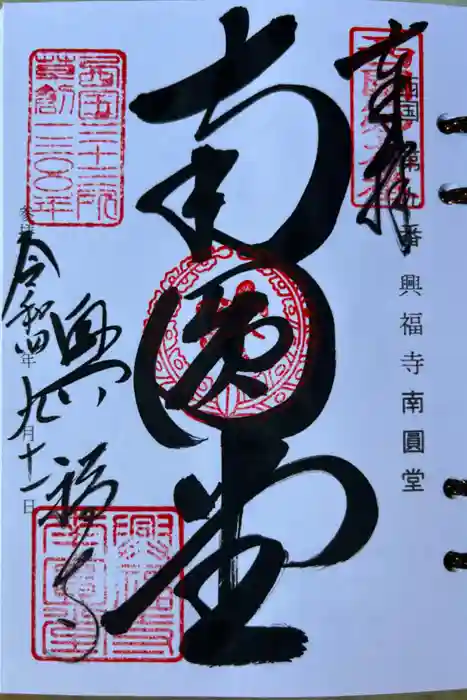 奉拝
西国第九番 興福寺南圓堂
南圓堂
西国三十三所
草創一三〇〇年
令和四年九月十一日
興福寺